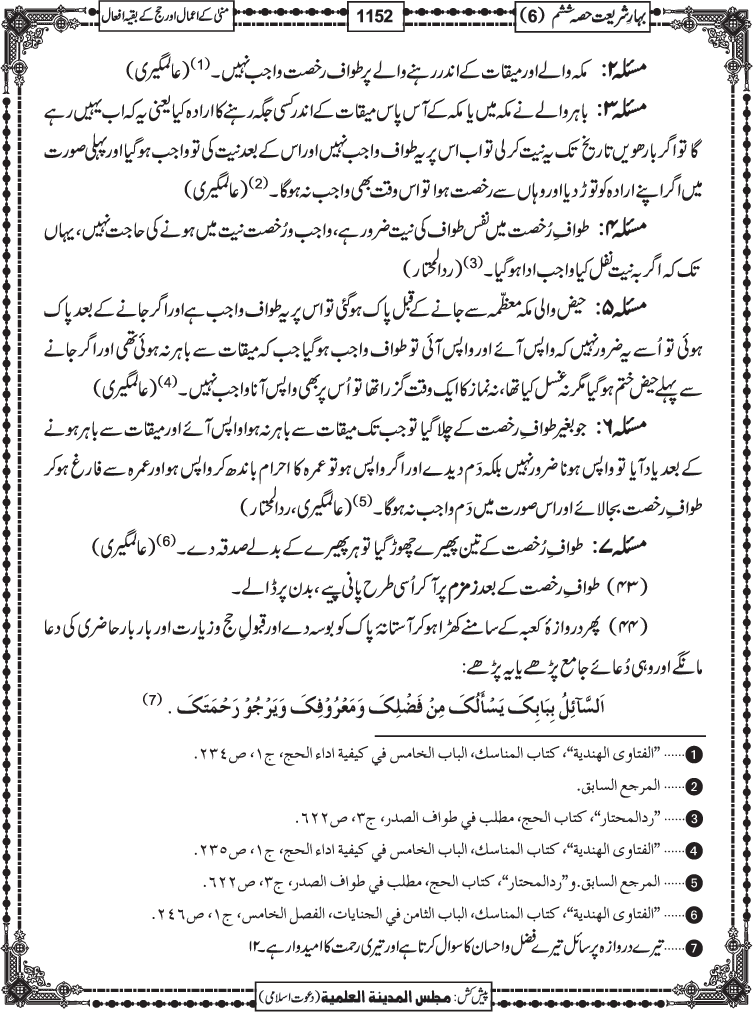 بہارِ شریعت حصہ ششم (6)
1152
منیٰ کے اعمال اور حج کے بقیہ افعال
مسئلہ ۲: مکہ والے اور میقات کے اندر رہنے والے پر طواف رخصت واجب نہیں۔(1) (عالمگیری)
مسئلہ ۳: باہر والے نے مکہ میں یا مکہ کے آس پاس میقات کے اندر کسی جگہ رہنے کا ارادہ کیا یعنی یہ کہ اب یہیں رہے
گا تو اگر بارھویں تاریخ تک یہ نیت کر لی تو اب اس پر یہ طواف واجب نہیں اور اس کے بعد نیت کی تو واجب ہوگیا اور پہلی صورت
میں اگر اپنے ارادہ کو توڑ دیا اور وہاں سے رخصت ہوا تو اس وقت بھی واجب نہ ہوگا۔(2) (عالمگیری)
مسئلہ ۴: طوافِ رُخصت میں نفس طواف کی نیت ضرور ہے، واجب و رُخصت نیت میں ہونے کی حاجت نہیں، یہاں
تک کہ اگر بہ نیت نفل کیا واجب ادا ہوگیا۔(3) (ردالمحتار)
مسئلہ ۵: حیض والی مکہ معظّمہ سے جانے کے قبل پاک ہوگئی تو اس پر یہ طواف واجب ہے اور اگر جانے کے بعد پاک
ہوئی تو اُسے یہ ضرور نہیں کہ واپس آئے اور واپس آئی تو طواف واجب ہوگیا جب کہ میقات سے باہر نہ ہوئی تھی اور اگر جانے
سے پہلے حیض ختم ہوگیا مگر نہ غسل کیا تھا، نہ نماز کا ایک وقت گزرا تھا تو اُس پر بھی واپس آنا واجب نہیں۔(4) (عالمگیری)
مسئلہ ۶: جو بغیر طوافِ رخصت کے چلا گیا تو جب تک میقات سے باہر نہ ہوا واپس آئے اور میقات سے باہر ہونے
کے بعد یاد آیا تو واپس ہونا ضرور نہیں بلکہ دَم دیدے اور اگر واپس ہو تو عمرہ کا احرام باندھ کر واپس ہو اور عمرہ سے فارغ ہو کر
طوافِ رخصت بجالائے اور اس صورت میں دَم واجب نہ ہوگا۔(5) (عالمگیری، ردالمحتار)
مسئلہ ۷: طوافِ رُخصت کے تین پھیرے چھوڑ گیا تو ہر پھیرے کے بدلے صدقہ دے۔(6) (عالمگیری)
(۴۳) طوافِ رخصت کے بعد زمزم پر آ کر اُسی طرح پانی پیے، بدن پر ڈالے۔
(۴۴) پھر دروازۂ کعبہ کے سامنے کھڑا ہو کر آستانۂ پاک کو بوسہ دے اور قبولِ حج و زیارت اور بار بار حاضری کی دعا
مانگے اور وہی دُعائے جامع پڑھے یا یہ پڑھے:
اَلسَّآئِلُ بِبَابِکَ یَسْأَلُکَ مِنْ فَضْلِکَ وَمَعْرُوْفِکَ وَیَرْجُوْ رَحْمَتَکَ . (7)
1 ...... ”الفتاوی الھندیة“، کتاب المناسك، الباب الخامس في کیفیة اداء الحج، ج۱، ص۲۳٤.
2 ...... المرجع السابق.
3 ...... ”ردالمحتار“، کتاب الحج، مطلب في طواف الصدر، ج۳، ص٦۲۲.
4 ...... ”الفتاوی الھندیة“، کتاب المناسك، الباب الخامس في کیفیة اداء الحج، ج۱، ص۲۳۵.
5 ...... المرجع السابق. و ”ردالمحتار“، کتاب الحج، مطلب في طواف الصدر، ج۳، ص٦۲۲.
6 ...... ”الفتاوی الھندیة“، کتاب المناسك، الباب الثامن في الجنایات، الفصل الخامس، ج۱، ص۲٤٦.
7 ...... تیرے دروازہ پر سائل تیرے فضل و احسان کا سوال کرتا ہے اور تیری رحمت کا امیدوار ہے۔ ۱۲
پیش کش: مجلس المدینة العلمیة (دعوتِ اسلامی)